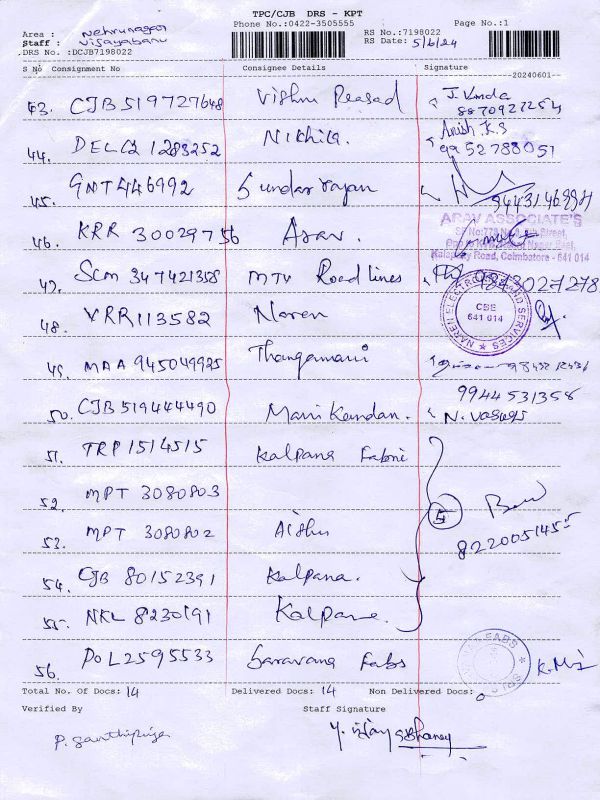 TPC/CJB DRS - KPT
Phone No.:0422-3505555
Page No.:1
Area : Nehrunagar
Staff : Vijayabanu
RS No.:7198022
RS Date: 5/6/24
DRS No.:DCJB7198022
S No Consignment No Consignee Details Signature
--20240601--
43. CJB519727648 Vishnu Prasad J. 8870927254
44. DEL62 1283252 Nikhila. Anish K.S 9952788051
45. GNT446992 Sundarrajan
46. KRR 30029756 Arav. ARAV ASSOCIATE'S
Road, Coimbatore - 641 014
47. SCM 347421358 MTV Roadlines
48. VRR113582 Naren NAREN ELECTRO AND SERVICES CBE 641 014
49. MAA 945049925 Thangamani
50. CJB519444490 Manikandan. 9944531358
51. TRP1514515 Kalpana Fabric
52. MPT 3080803
53. MPT 3080802 Aishu 5 8220051455
54. CJB 80152391 Kalpana.
55. NKL 8230191 Kalpana.
56. POL2595533 Saravana Fabs
Total No. Of Docs: 14 Delivered Docs: 14 Non Delivered Docs: 0
Verified By Staff Signature